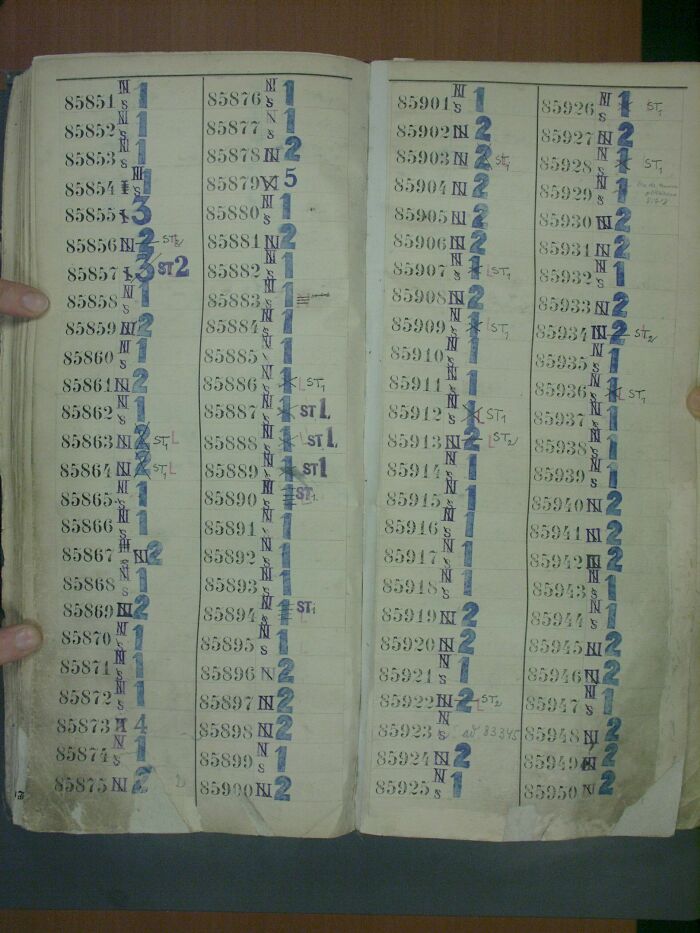 85851 N S 1
85852 N S 1
85853 N S 1
85854 N S 1
85855 3
85856 N 2 ST2
85857 3 ST2
85858 N S 1
85859 N 2
85860 N S 1
85861 N 2
85862 N S 1
85863 N 2 ST1 L
85864 N 2 ST1 L
85865 N S 1
85866 N S 1
85867 N 2
85868 N S 1
85869 N 2
85870 N S 1
85871 N S 1
85872 N S 1
85873 A 4
85874 N S 1
85875 N 2
85876 N S 1
85877 N S 1
85878 N 2
85879 N 5
85880 N S 1
85881 N 2
85882 N S 1
85883 N S 1
85884 N S 1
85885 N S 1
85886 N S 1 L ST1
85887 N S 1 ST1
85888 N S 1 L ST1
85889 N S 1 ST1
85890 N S 1 ST1
85891 N S 1
85892 N S 1
85893 N S 1
85894 N S 1 ST1
85895 N S 1
85896 N 2
85897 N 2
85898 N 2
85899 N S 1
85900 N 2
85901 N S 1
85902 N 2
85903 N 2 ST1
85904 N 2
85905 N 2
85906 N 2
85907 N S 1 L ST1
85908 N 2
85909 N S 1 L ST1
85910 N S 1
85911 N S 1
85912 N S 1 L ST1
85913 N 2 L ST2
85914 N S 1
85915 N S 1
85916 N S 1
85917 N S 1
85918 N S 1
85919 N 2
85920 N 2
85921 N S 1
85922 N 2 L ST2
85923 N S ad 83345
85924 N 2
85925 N S 1
85926 N S 1 ST1
85927 N 2
85928 N S 1 ST1
85929 N S 1
85930 N 2
85931 N 2
85932 N S 1
85933 N 2
85934 N 2 ST2
85935 N S 1
85936 N S 1 L ST1
85937 N S 1
85938 N S 1
85939 N S 1
85940 N 2
85941 N 2
85942 N 2
85943 N S 1
85944 N S 1
85945 N 2
85946 N 2
85947 N S 1
85948 N 2
85949 2
85950 N 2